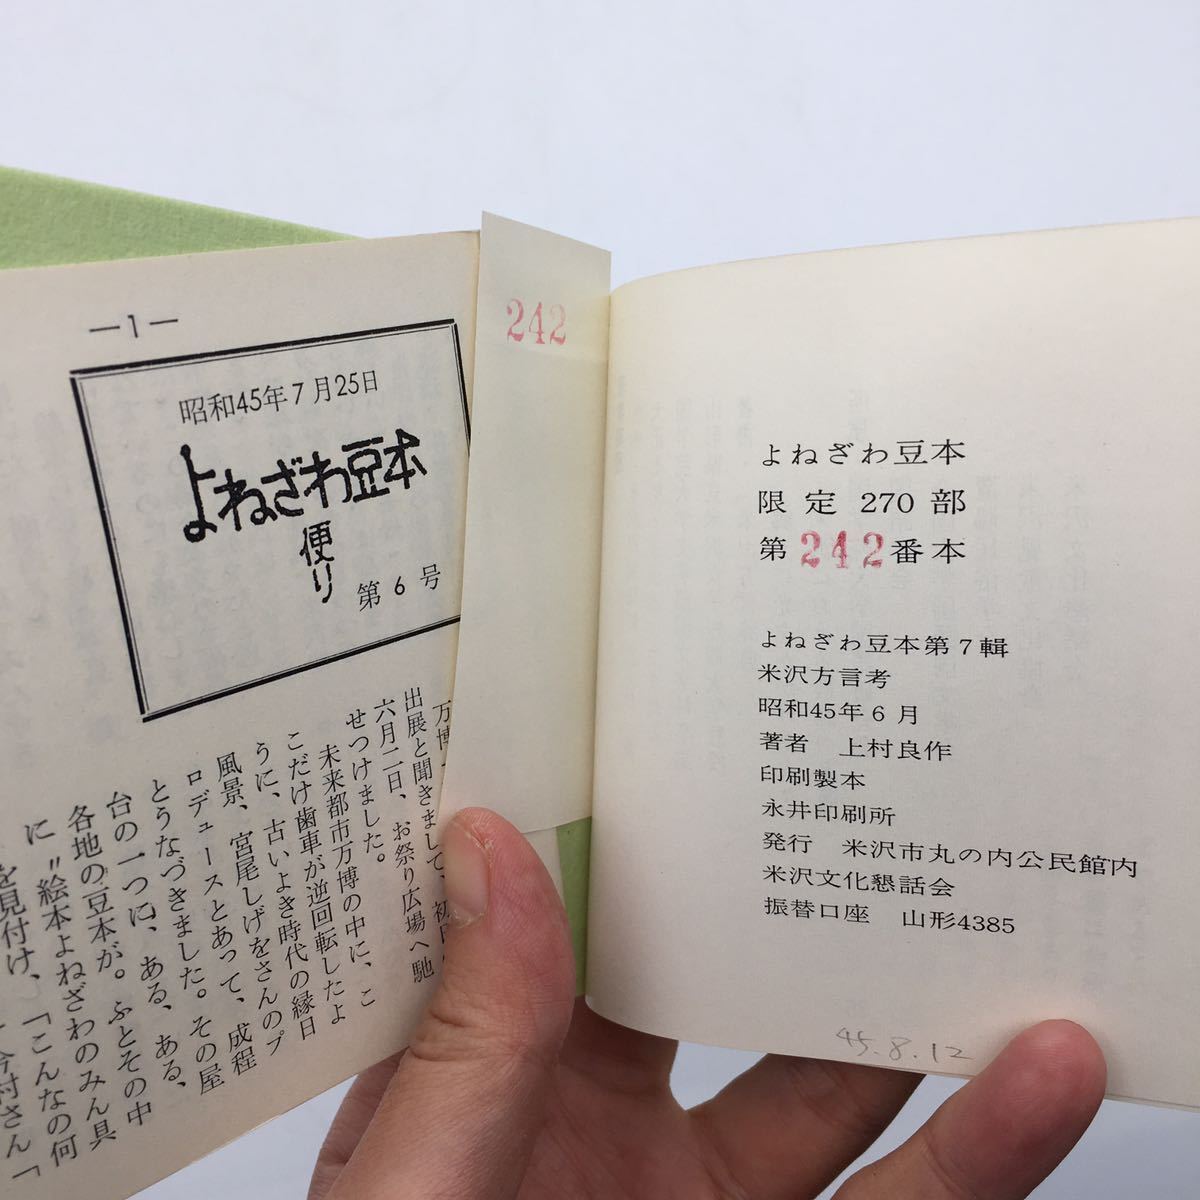 —1—
昭和45年7月25日
よねざわ豆本
便り
第6号
万博
出展と聞きまして、初日
六月二日、お祭り広場へ馳
せつけました。
未来都市万博の中に、こ
こだけ歯車が逆回転したよ
うに、古いよき時代の縁日
風景、宮尾しげをさんのプ
ロデュースとあって、成程
とうなづきました。その屋
台の一つに、ある、ある、
各地の豆本が。ふとその中
に〝絵本よねざわのみん具
を見付け、「こんなの何
今村さん「
242
よねざわ豆本
限定 270部
第242番本
よねざわ豆本第7輯
米沢方言考
昭和45年6月
著者 上村良作
印刷製本
永井印刷所
発行 米沢市丸の内公民館内
米沢文化懇話会
振替口座 山形4385
45.8.12